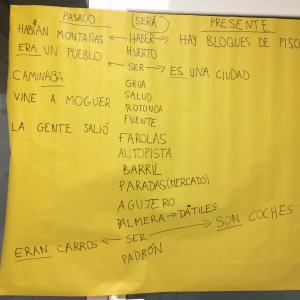 PASADO SERÁ PRESENTE
HABÍAN MONTAÑAS ← HABER → HAY BLOQUES DE PISO
HUERTO
ERA UN PUEBLO ← SER → ES UNA CIUDAD
CAMINABA
GRUA
SALUD
VINE A MOGUER
ROTONDA
FUENTE
LA GENTE SALIÓ
FAROLAS
AUTOPISTA
BARRIL
PARADAS (MERCADO)
AGUJERO
PALMERA → DÁTILES
ERAN CARROS ← SER → SON COCHES
PADRÓN